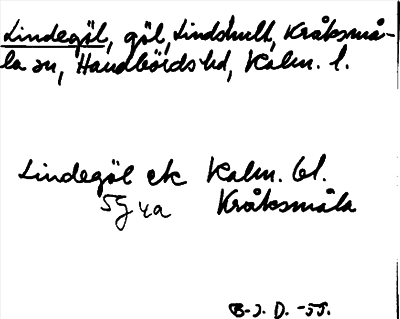 Lindegöl, göl, Lindshult, Kråksmå-
la sn, Handbörds hd, Kalm. l.
Lindegöl ek Kalm. bl.
5G 4a Kråksmåla
B-J. D. -55.